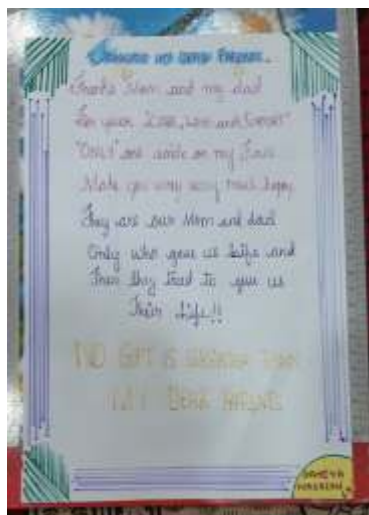 Thanks Mom and my dad
For your "Care, Love and Support"
"Only" one smile on my Face
Make you very very much happy
They are our Mom and dad
Only who gave us Life and
Then they tried to give us
Their Life!!
NO GIFT IS GREATER THAN
MY DEAR PARENTS